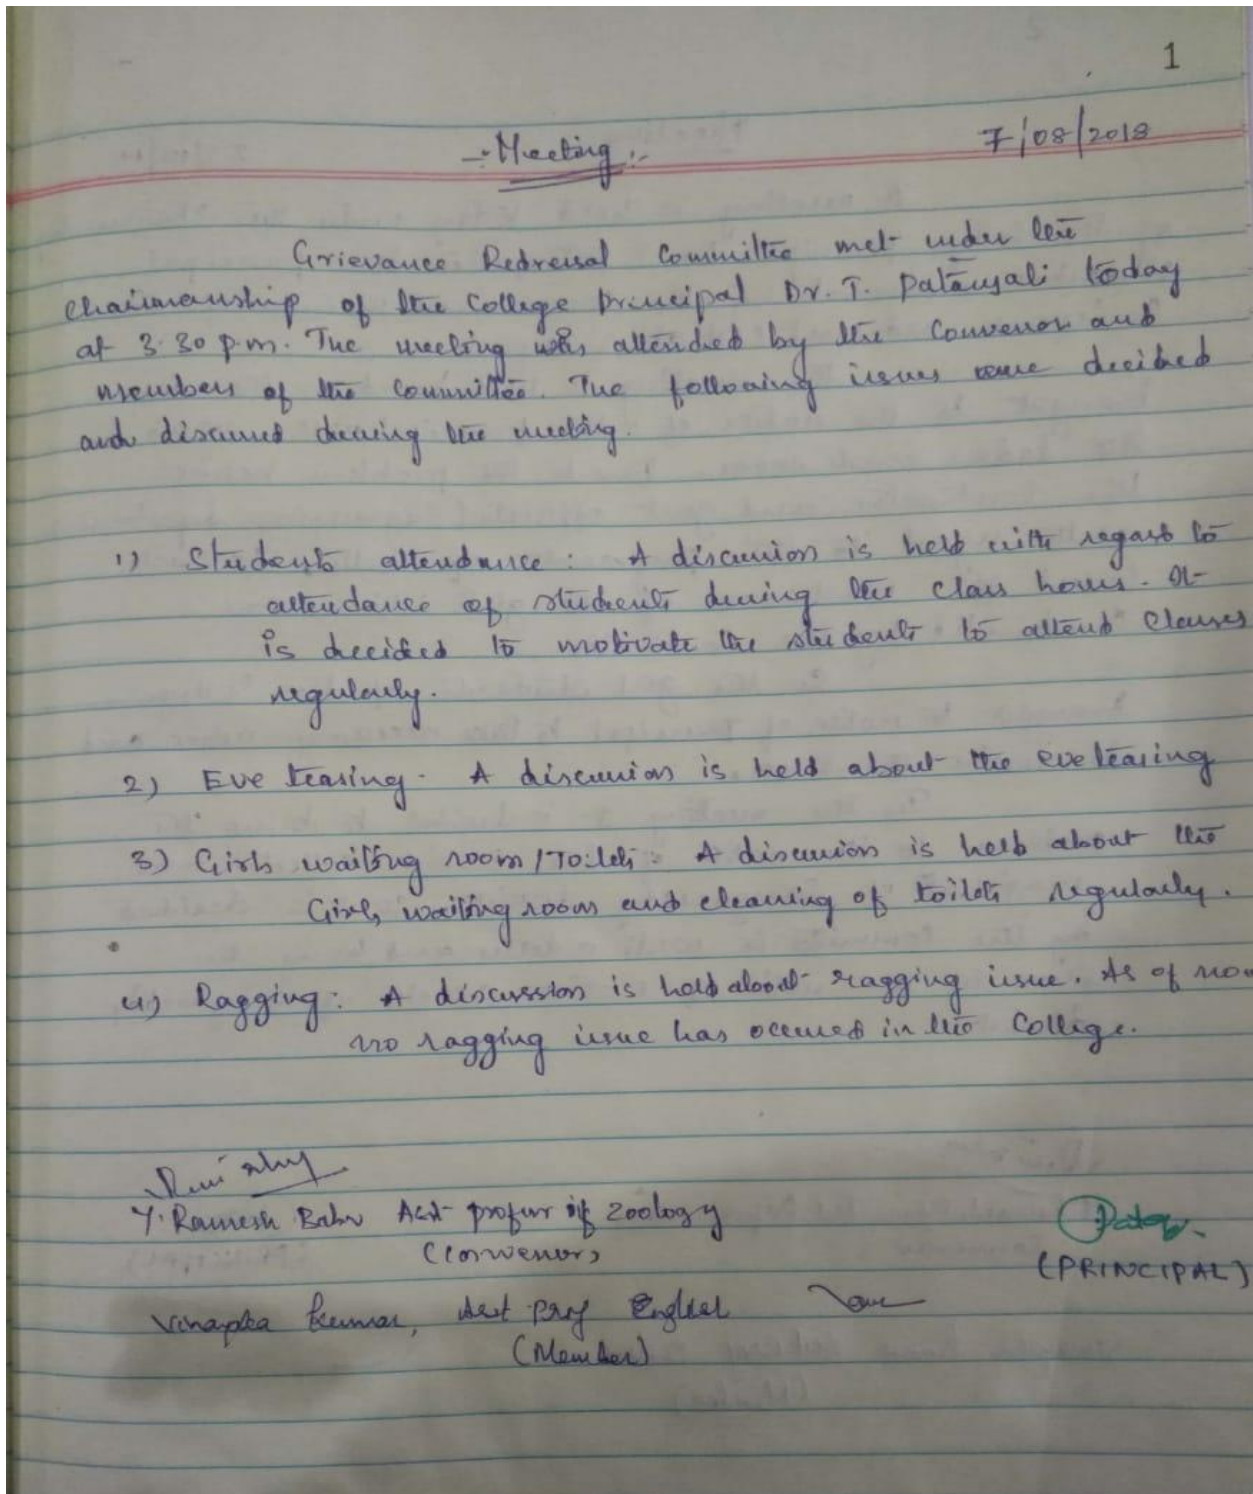 1
-: Meeting :-
7/08/2018
Grievance Redressal Committee met under the
chairmanship of the College principal Dr. T. Patanjali today
at 3.30 p.m. The meeting was attended by the Convenor and
members of the Committee. The following issues were decided
and discussed during the meeting.
1) Students attendance : A discussion is held with regard to
attendance of students during the class hours. It
is decided to motivate the students to attend classes
regularly.
2) Eve teasing - A discussion is held about the eve teasing
3) Girls waiting room / Toilets : A discussion is held about the
Girls waiting room and cleaning of toilets regularly.
4) Ragging : A discussion is held about ragging issue. As of now
no ragging issue has occured in the College.
Y. Ramesh Babu Asst professor of Zoology
(Convenor)
(PRINCIPAL)
Kumar, Asst Prof English
(Member)